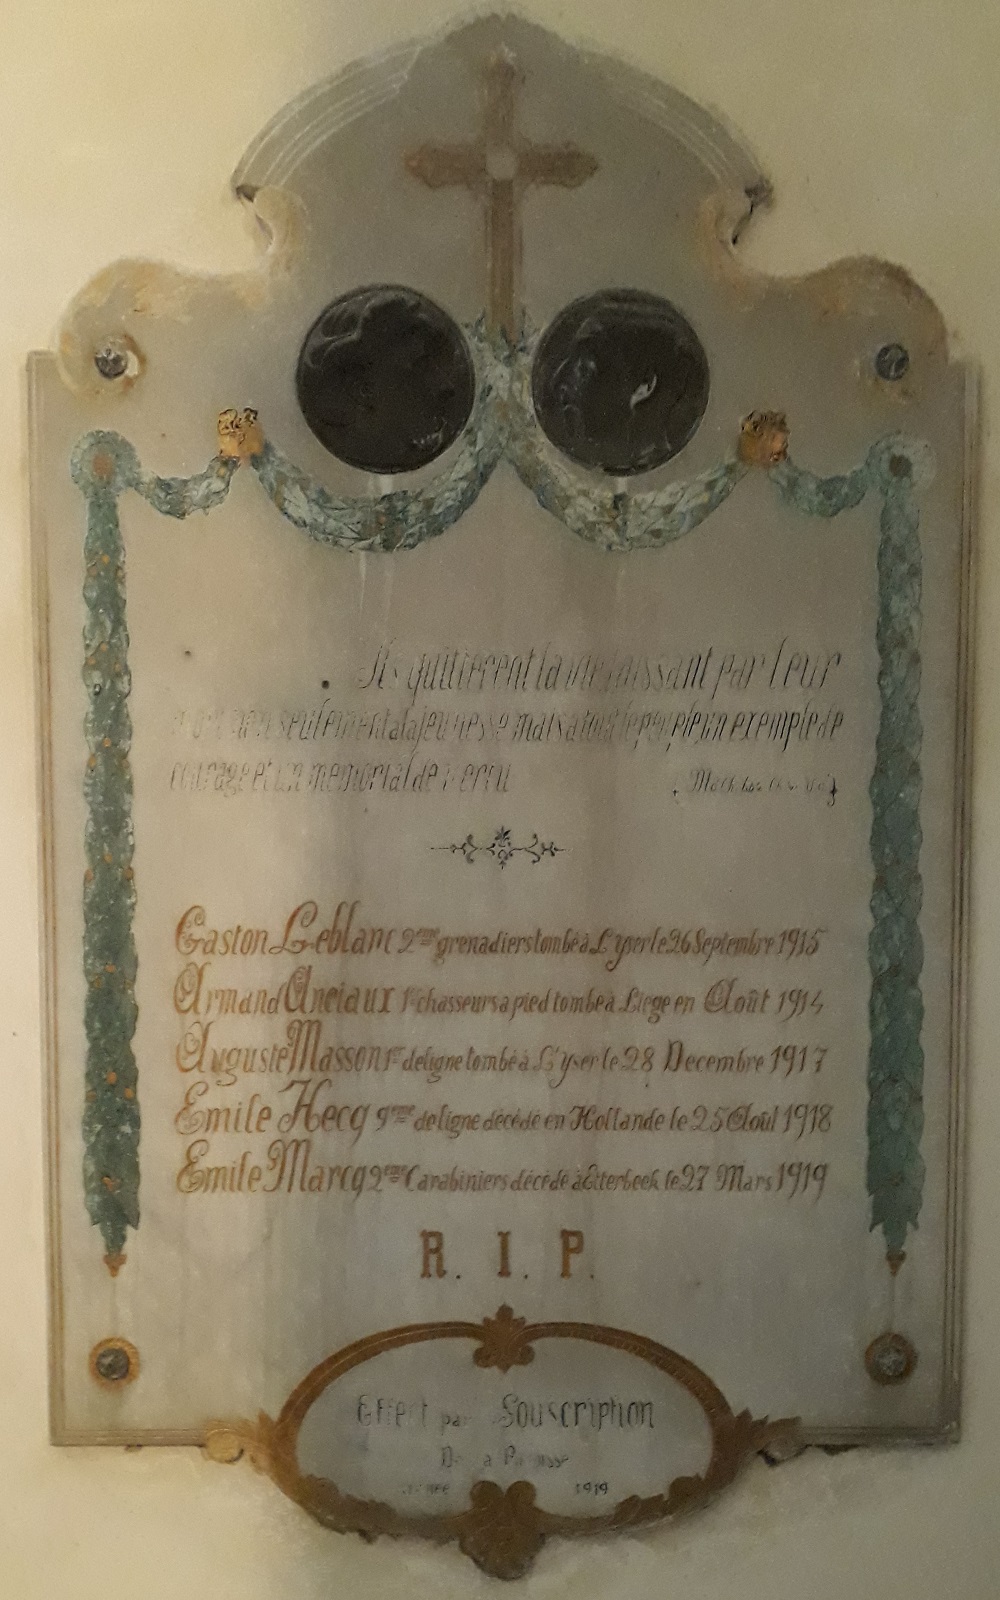 Ils quittèrent la vie laissant par leur
mort non seulement a la jeunesse mais a tout le peuple un exemple de
courage et un mémorial de vertu
Gaston Leblanc 2eme grenadiers tombé à L'yser le 26 Septembre 1915
Armand Anciaux 1er chasseurs a pied tombé à Liege en Août 1914
Auguste Masson 1er de ligne tombé à L'yser le 28 Decembre 1917
Emile Hecq 9eme de ligne décédé en Hollande le 25 Août 1918
Emile Marcq 2eme Carabiniers décédé à Etterbeek le 27 Mars 1919
R. I. P.
Offert par Souscription
De la Paroisse
Année 1919